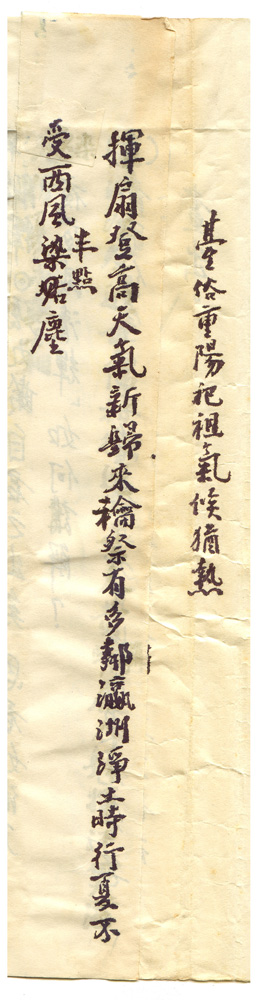 臺俗重陽祀祖氣候猶熱
揮扇登高天氣新歸來禴祭有多鄰瀛洲淨土時行夏不
受西風染點塵
半點